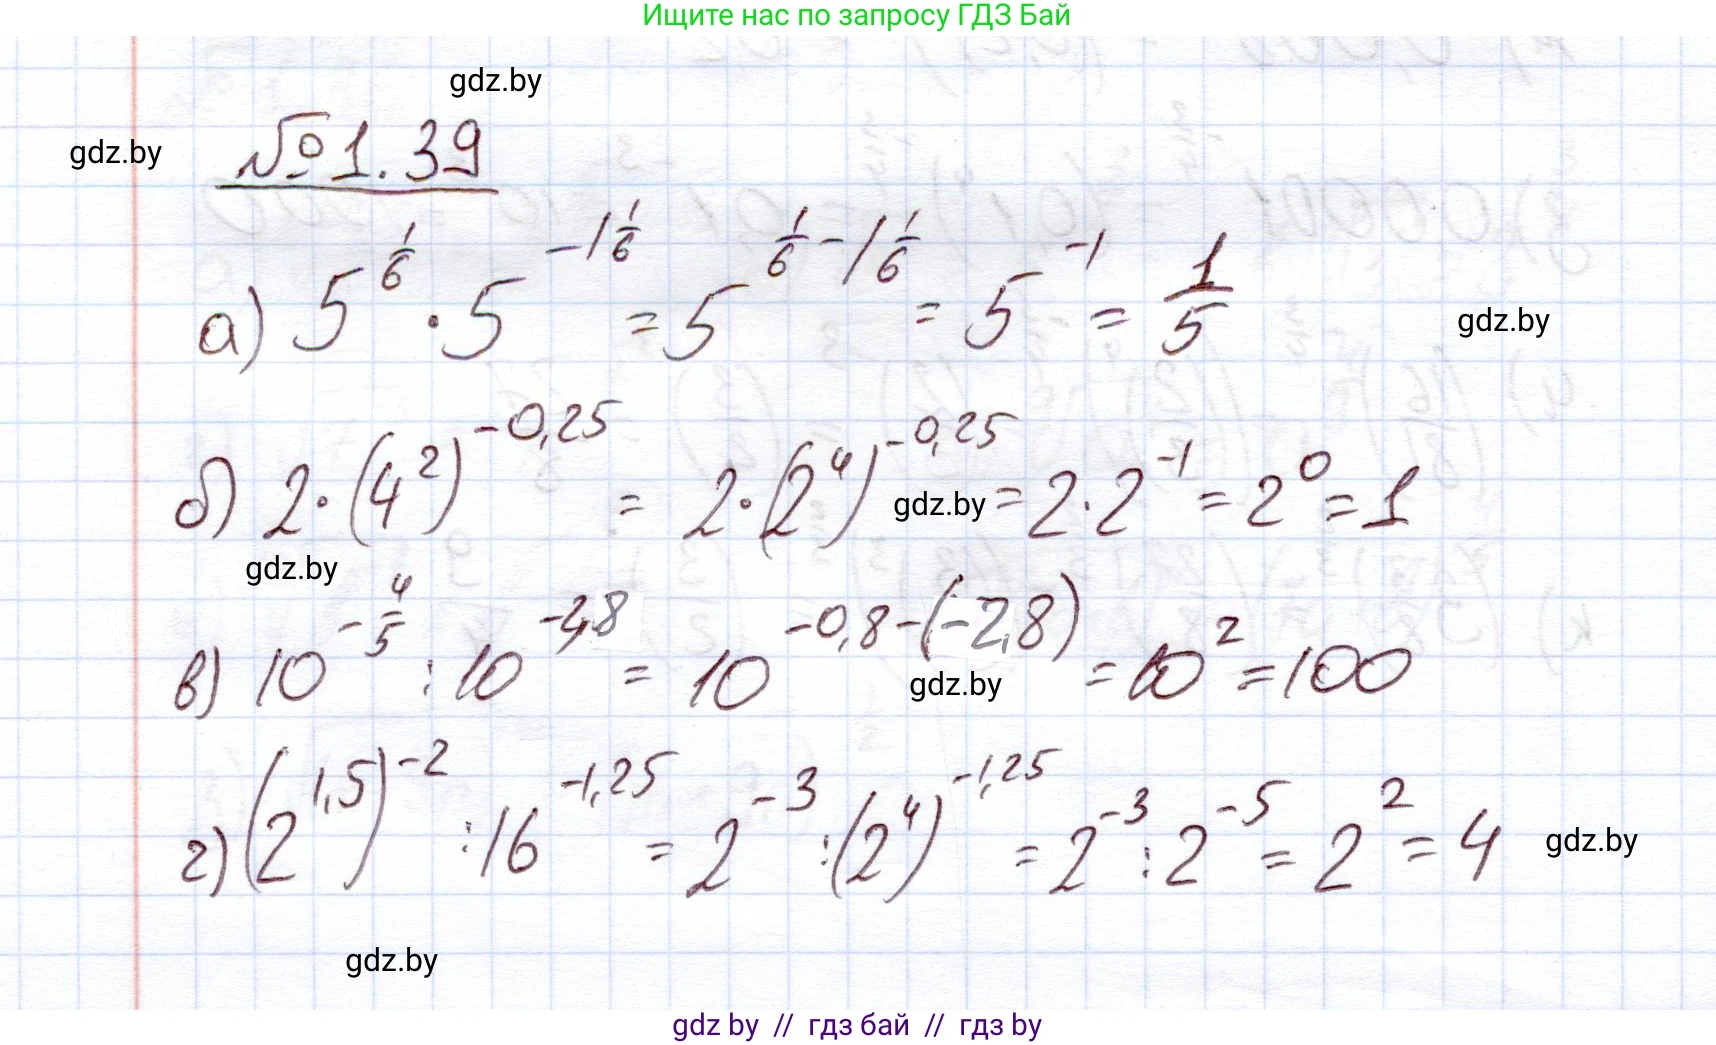 Ищите нас по запросу ГДЗ Бай
gdz.by
gdz.by
№1.39
а) 5^(1/6) · 5^(-1 1/6) = 5^(1/6 - 1 1/6) = 5^(-1) = 1/5
gdz.by
б) 2·(4^2)^(-0,25) = 2·(2^4)^(-0,25) = 2·2^(-1) = 2^0 = 1
gdz.by
gdz.by
в) 10^(-4/5) : 10^(-2,8) = 10^(-0,8-(-2,8)) = 10^2 = 100
gdz.by
г) (2^(1,5))^(-2) : 16^(-1,25) = 2^(-3) : (2^4)^(-1,25) = 2^(-3) : 2^(-5) = 2^2 = 4
gdz.by
gdz.by
gdz by // гдз бай // гдз by